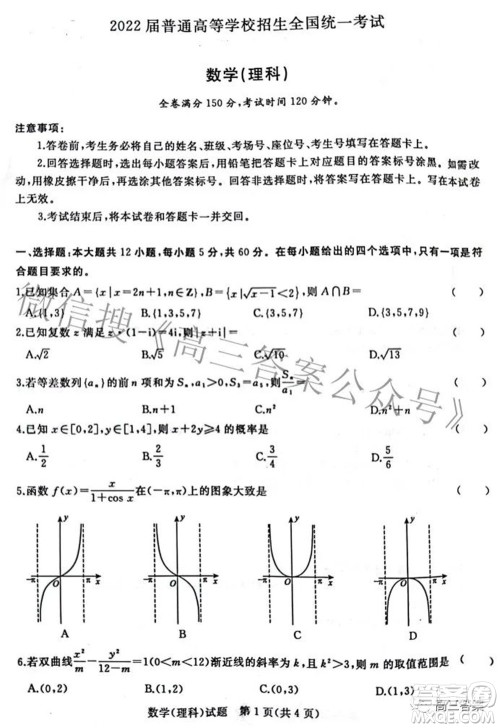 2022届普通高等学校招生全国统一考试
数学(理科)
全卷满分150分,考试时间120分钟。
注意事项:
1.答卷前,考生务必将自己的姓名、班级、考场号、座位号、考生号填写在答题卡上。
2.回答选择题时,选出每小题答案后,用铅笔把答题卡上对应题目的答案标号涂黑。如需改
动,用橡皮擦干净后,再选涂其他答案标号。回答非选择题时,将答案写在答题卡上。写在本试卷
上无效。
3.考试结束后,将本试卷和答题卡一并交回。
一、选择题:本大题共12小题,每小题5分,共60分。在每小题给出的四个选项中,只有一项是符
合题目要求的。
1.已知集合A={x|x=2n+1,n∈Z},B={x|√(x-1)<2},则A∩B= ( )
A.{1,3} B.{1,3,5,7} C.{3,5,7} D.{1,3,5,7,9}
2.已知复数z满足z(1-i)=4i,则|z+i|= ( )
A.√2 B.√5 C.√10 D.√13
3.若等差数列{aₙ}的前n项和为Sₙ,a₁>0,S₃=a₅,则Sₙ/a₁= ( )
A.n B.n+1 C.n² D.n²+n
4.已知x∈[0,2],y∈[1,4],则x+y≥4的概率是 ( )
A.1/2 B.1/3 C.2/3 D.5/6
5.函数f(x)=x/(1+cos x)在(-π,π)上的图象大致是 ( )
y y y y
-π O π x -π O π x -π O π x -π O π x
A B C D
6.若双曲线x²/m-y²/(12-m)=1(0<m<12)渐近线的斜率为k,且|k|>1,则m的取值范围是 ( )
A.(0,2) B.(0,3) C.(0,6) D.(0,9)
数学(理科)试题 第1页(共4页)
微信搜《高三答案公众号》
高三答案